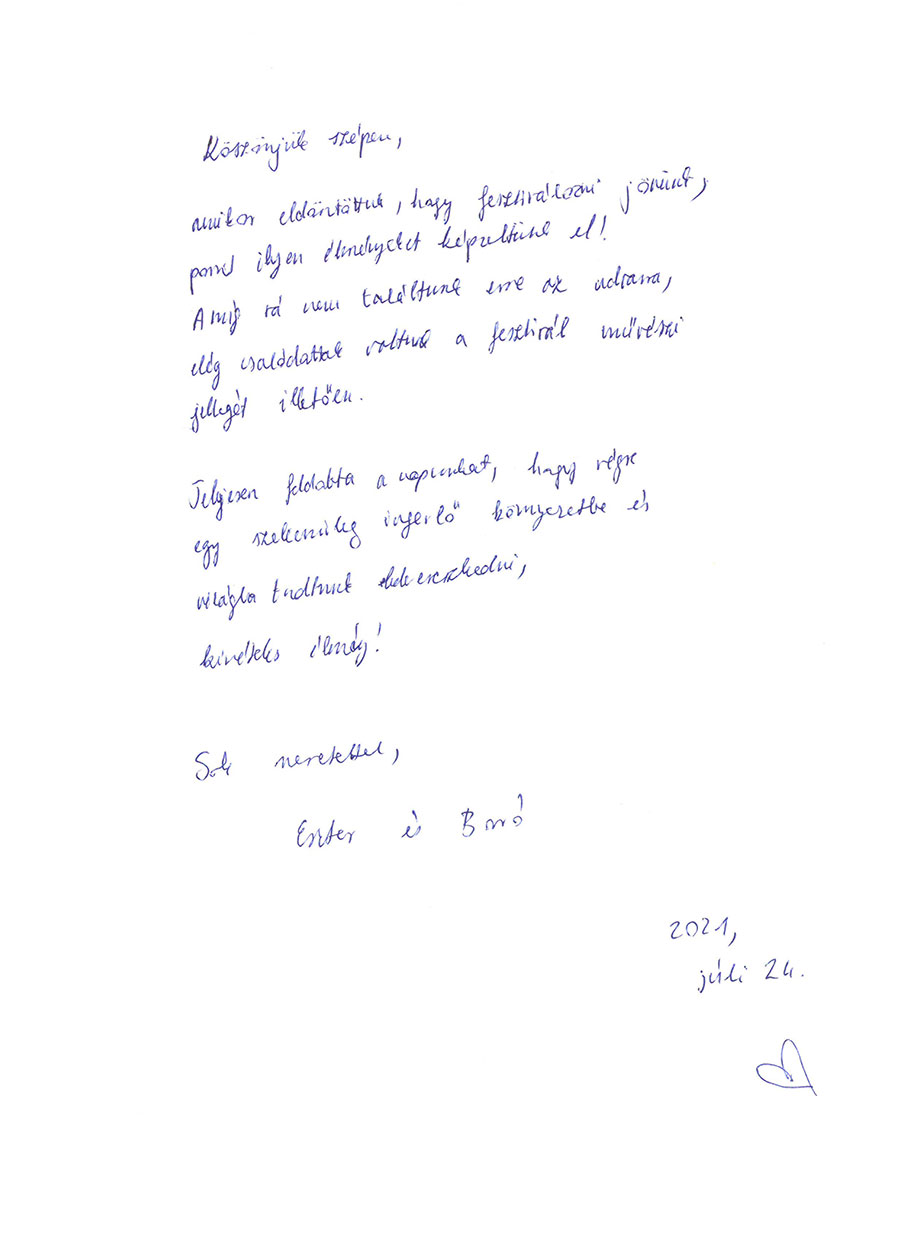 Köszönjük szépen,
amikor eldöntöttük, hogy fesztiválozni jövünk,
pont ilyen élményeket képzeltünk el!
Amíg rá nem találtunk erre az udvarra,
elég csalódottak voltunk a fesztivál művészi
jellegét illetően.
Teljesen feldobta a napunkat, hogy végre
egy szellemileg ingerlő környezetbe és
világba tudtunk beleereszkedni,
kivételes élmény!
Sok szeretettel,
Eszter és
2021,
júli 24.